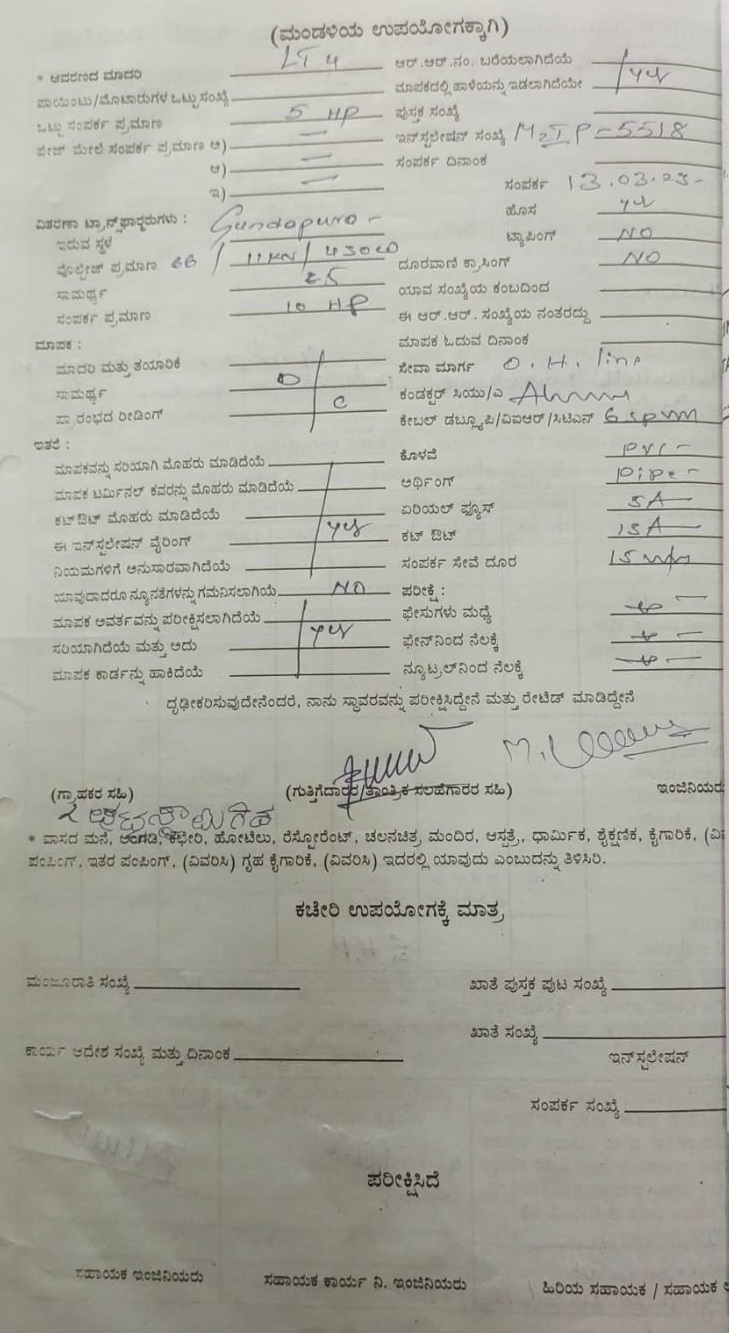 (ಮಂಡಳಿಯ ಉಪಯೋಗಕ್ಕಾಗಿ)
* ಆವರಣದ ಮಾದರಿ LT 4
ಪಾಯಿಂಟು/ಮೊಟಾರುಗಳ ಒಟ್ಟು ಸಂಖ್ಯೆ
ಒಟ್ಟು ಸಂಪರ್ಕ ಪ್ರಮಾಣ 5 HP
ಪೇಜ್ ಮೇಲೆ ಸಂಪರ್ಕ ಪ್ರಮಾಣ ಅ) —
ಆ) —
ಇ) —
ವಿತರಣಾ ಟ್ರಾನ್ಸ್‌ಫಾರ್ಮರುಗಳು :
ಇರುವ ಸ್ಥಳ Gundapura -
ವೊಲ್ಟೇಜ್ ಪ್ರಮಾಣ 66 / 11KV /
ಸಾಮರ್ಥ್ಯ 25
ಸಂಪರ್ಕ ಪ್ರಮಾಣ 10 HP
ಮಾಪಕ :
ಮಾದರಿ ಮತ್ತು ತಯಾರಿಕೆ
ಸಾಮರ್ಥ್ಯ D
ಪ್ರಾರಂಭದ ರೀಡಿಂಗ್ C
ಇತರೆ :
ಮಾಪಕವನ್ನು ಸರಿಯಾಗಿ ಮೊಹರು ಮಾಡಿದೆಯೆ
ಮಾಪಕ ಟರ್ಮಿನಲ್ ಕವರನ್ನು ಮೊಹರು ಮಾಡಿದೆಯೆ
ಕಟ್‌ಔಟ್ ಮೊಹರು ಮಾಡಿದೆಯೆ
ಈ ಇನ್‌ಸ್ಟಲೇಷನ್ ವೈರಿಂಗ್ yes
ನಿಯಮಗಳಿಗೆ ಅನುಸಾರವಾಗಿದೆಯೆ
ಯಾವುದಾದರೂ ನ್ಯೂನತೆಗಳನ್ನು ಗಮನಿಸಲಾಗಿಯೆ NO
ಮಾಪಕ ಆವರ್ತವನ್ನು ಪರೀಕ್ಷಿಸಲಾಗಿದೆಯೆ
ಸರಿಯಾಗಿದೆಯೆ ಮತ್ತು ಅದು yes
ಮಾಪಕ ಕಾರ್ಡನ್ನು ಹಾಕಿದೆಯೆ
ಆರ್.ಆರ್.ನಂ. ಬರೆಯಲಾಗಿದೆಯೆ
ಮಾಪಕದಲ್ಲಿ ಹಾಳೆಯನ್ನು ಇಡಲಾಗಿದೆಯೇ yes
ಪುಸ್ತಕ ಸಂಖ್ಯೆ
ಇನ್‌ಸ್ಟಲೇಷನ್ ಸಂಖ್ಯೆ M2IP-5518
ಸಂಪರ್ಕ ದಿನಾಂಕ
ಸಂಪರ್ಕ 13.03.23-
ಹೊಸ yes
ಟ್ಯಾಪಿಂಗ್ NO
ದೂರವಾಣಿ ಕ್ರಾಸಿಂಗ್ NO
ಯಾವ ಸಂಖ್ಯೆಯ ಕಂಬದಿಂದ
ಈ ಆರ್.ಆರ್. ಸಂಖ್ಯೆಯ ನಂತರದ್ದು
ಮಾಪಕ ಓದುವ ದಿನಾಂಕ
ಸೇವಾ ಮಾರ್ಗ O.H. line
ಕಂಡಕ್ಟರ್ ಸಿಯು/ಎ
ಕೇಬಲ್ ಡಬ್ಲ್ಯೂಪಿ/ವಿಐಆರ್/ಸಿಟಿಎಸ್
ಕೊಳವೆ pvc -
ಅರ್ಥಿಂಗ್ pipe -
ಏರಿಯಲ್ ಫ್ಯೂಸ್ 5A
ಕಟ್ ಔಟ್ 15A
ಸಂಪರ್ಕ ಸೇವೆ ದೂರ
ಪರೀಕ್ಷೆ :
ಫೇಸುಗಳು ಮಧ್ಯೆ
ಫೇಸ್‌ನಿಂದ ನೆಲಕ್ಕೆ
ನ್ಯೂಟ್ರಲ್‌ನಿಂದ ನೆಲಕ್ಕೆ
ದೃಢೀಕರಿಸುವುದೇನೆಂದರೆ, ನಾನು ಸ್ಥಾವರವನ್ನು ಪರೀಕ್ಷಿಸಿದ್ದೇನೆ ಮತ್ತು ರೇಟಿಡ್ ಮಾಡಿದ್ದೇನೆ
(ಗ್ರಾಹಕರ ಸಹಿ) (ಗುತ್ತಿಗೆದಾರರ/ತಾಂತ್ರಿಕ ಸಲಹೆಗಾರರ ಸಹಿ) ಇಂಜಿನಿಯರು
* ವಾಸದ ಮನೆ, ಅಂಗಡಿ, ಕಛೇರಿ, ಹೋಟೆಲು, ರೆಸ್ಟೋರೆಂಟ್, ಚಲನಚಿತ್ರ ಮಂದಿರ, ಆಸ್ಪತ್ರೆ, ಧಾರ್ಮಿಕ, ಶೈಕ್ಷಣಿಕ, ಕೈಗಾರಿಕೆ,
ಪಂಪಿಂಗ್, ಇತರ ಪಂಪಿಂಗ್, (ವಿವರಿಸಿ) ಗೃಹ ಕೈಗಾರಿಕೆ, (ವಿವರಿಸಿ) ಇದರಲ್ಲಿ ಯಾವುದು ಎಂಬುದನ್ನು ತಿಳಿಸಿರಿ.
ಕಚೇರಿ ಉಪಯೋಗಕ್ಕೆ ಮಾತ್ರ
ಮಂಜೂರಾತಿ ಸಂಖ್ಯೆ ಖಾತೆ ಪುಸ್ತಕ ಪುಟ ಸಂಖ್ಯೆ
ಖಾತೆ ಸಂಖ್ಯೆ
ಕಾರ್ಯ ಆದೇಶ ಸಂಖ್ಯೆ ಮತ್ತು ದಿನಾಂಕ ಇನ್‌ಸ್ಟಲೇಷನ್
ಸಂಪರ್ಕ ಸಂಖ್ಯೆ
ಪರೀಕ್ಷಿಸಿದೆ
ಸಹಾಯಕ ಇಂಜಿನಿಯರು ಸಹಾಯಕ ಕಾರ್ಯ ನಿ. ಇಂಜಿನಿಯರು ಹಿರಿಯ ಸಹಾಯಕ / ಸಹಾಯಕ